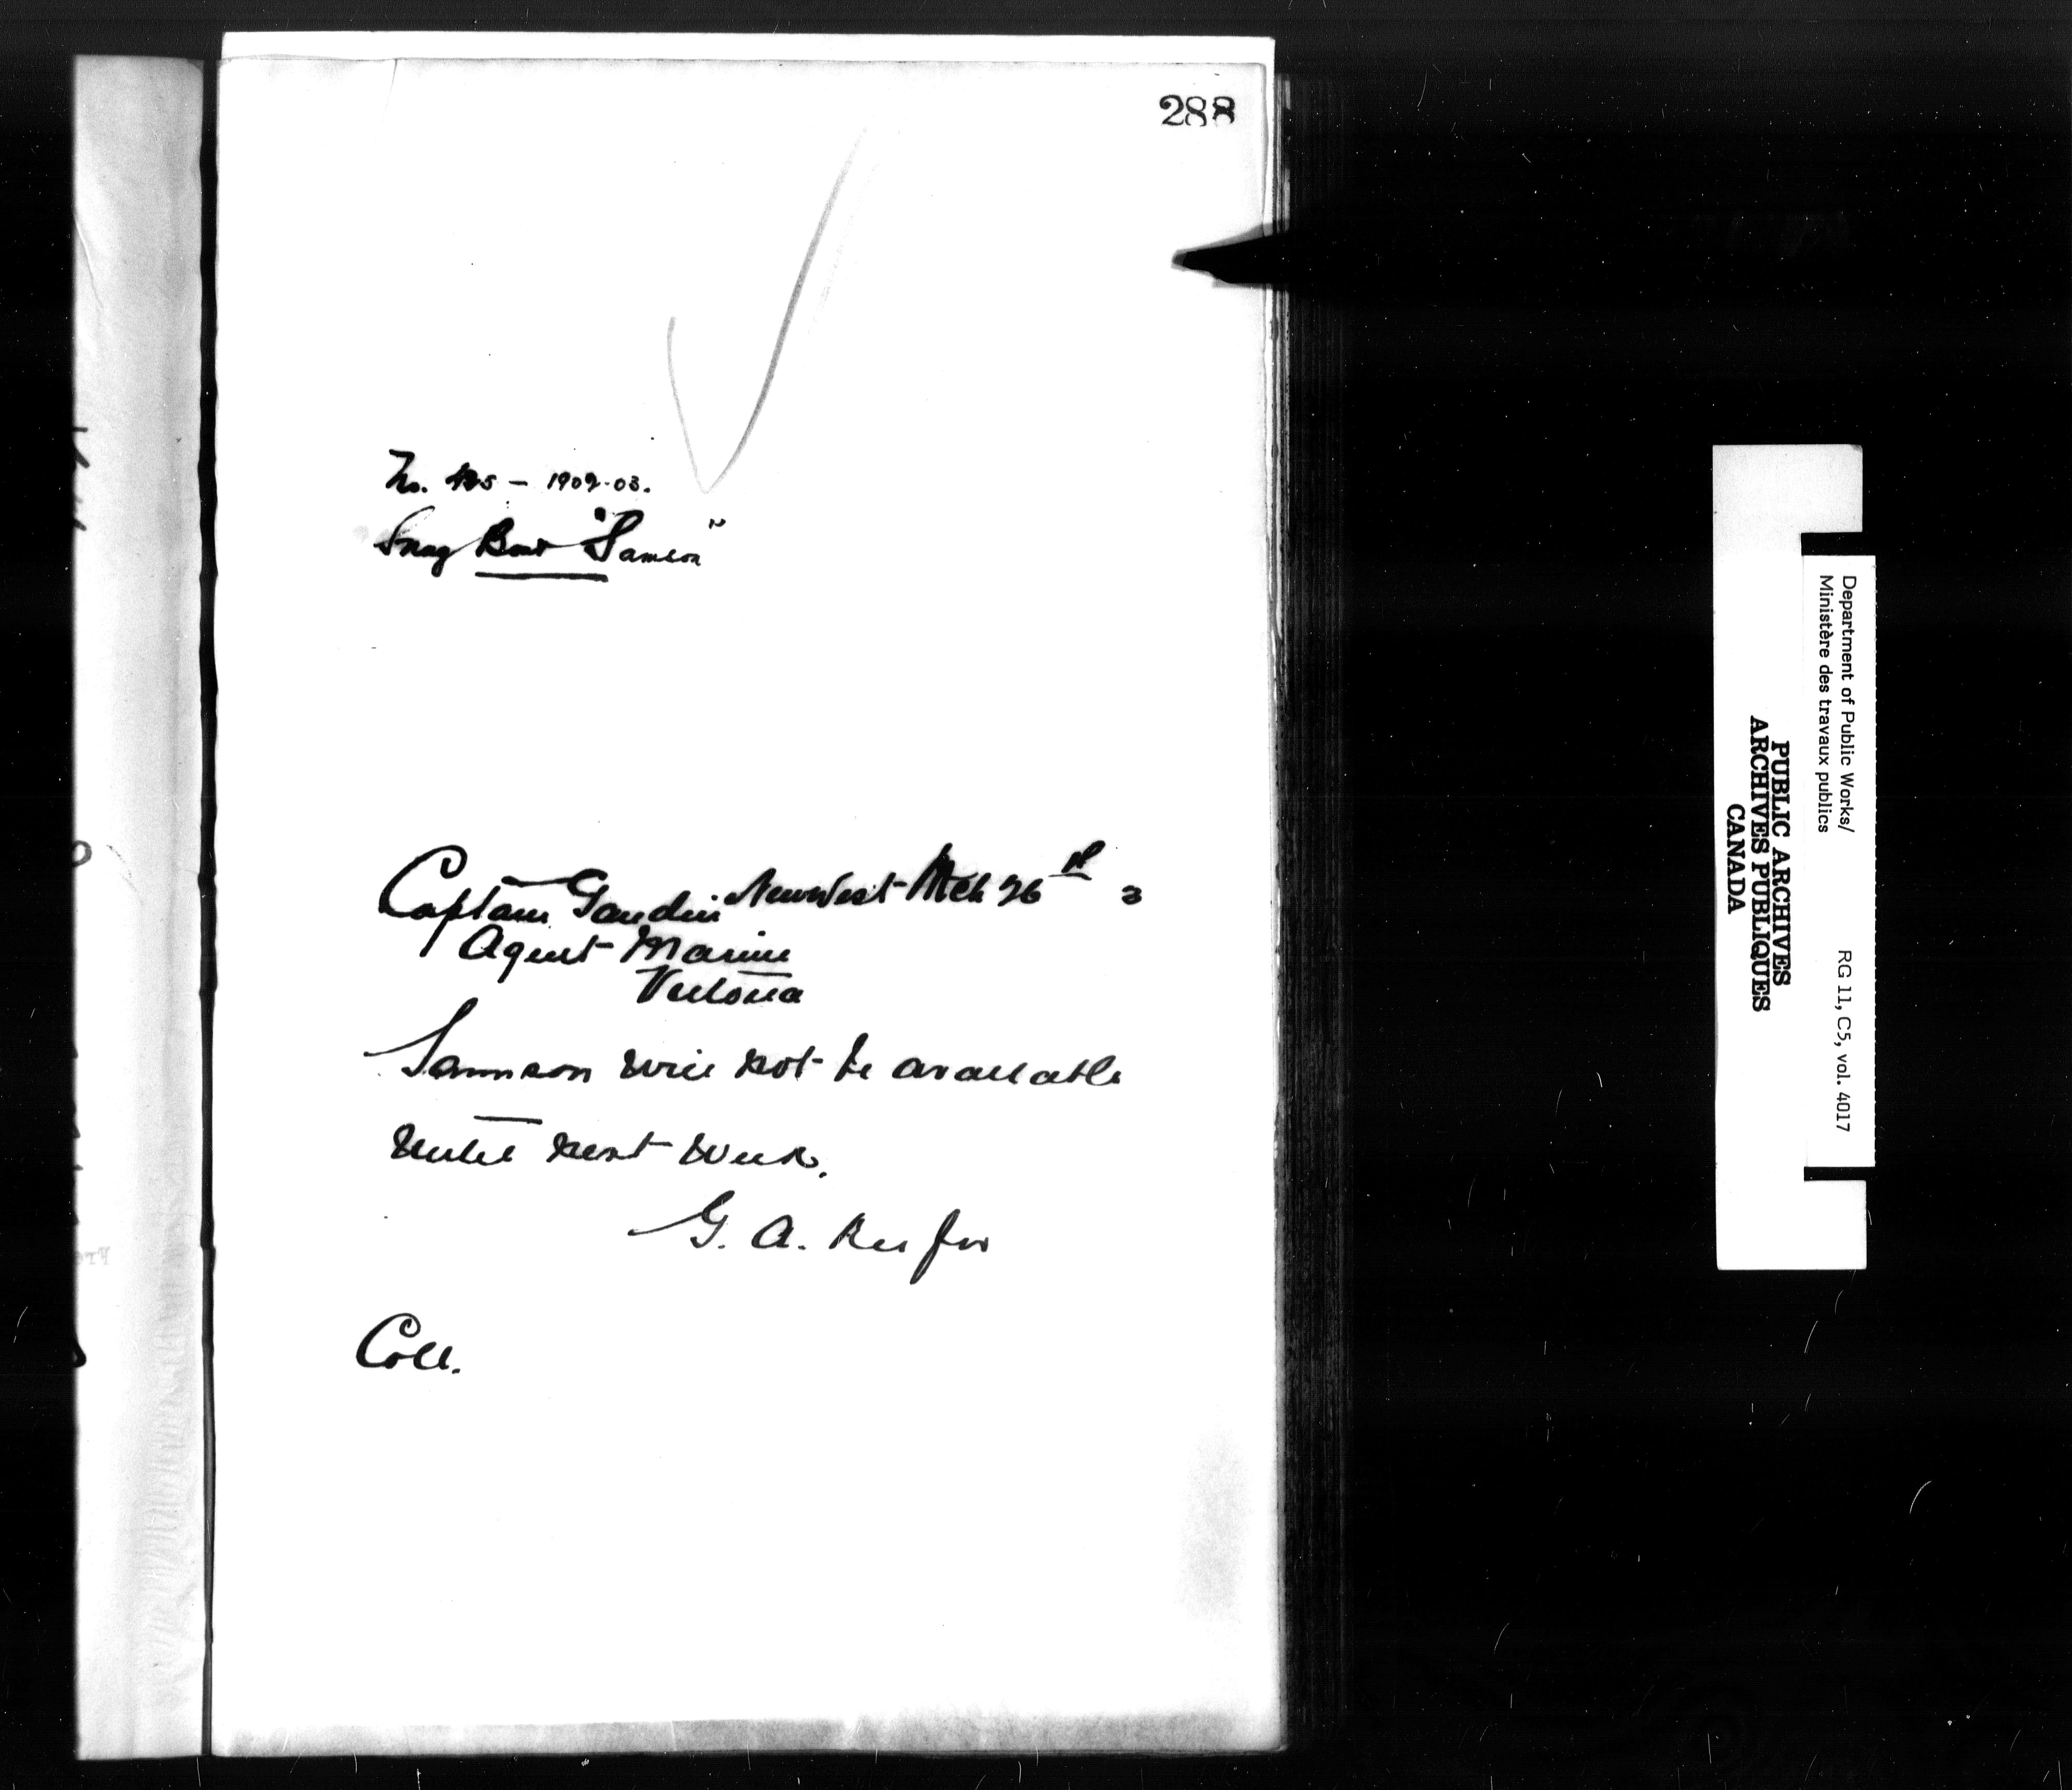 288
No. 125 - 1902-03.
Snag Boat "Samson"
New West Mch 26th 3
Captain Gaudin
Agent Marine
Victoria
Samson will not be available
until next week.
G. A. Keefer
Coll.
Department of Public Works/
Ministère des travaux publics
RG 11, C5, vol. 4017
PUBLIC ARCHIVES
ARCHIVES PUBLIQUES
CANADA